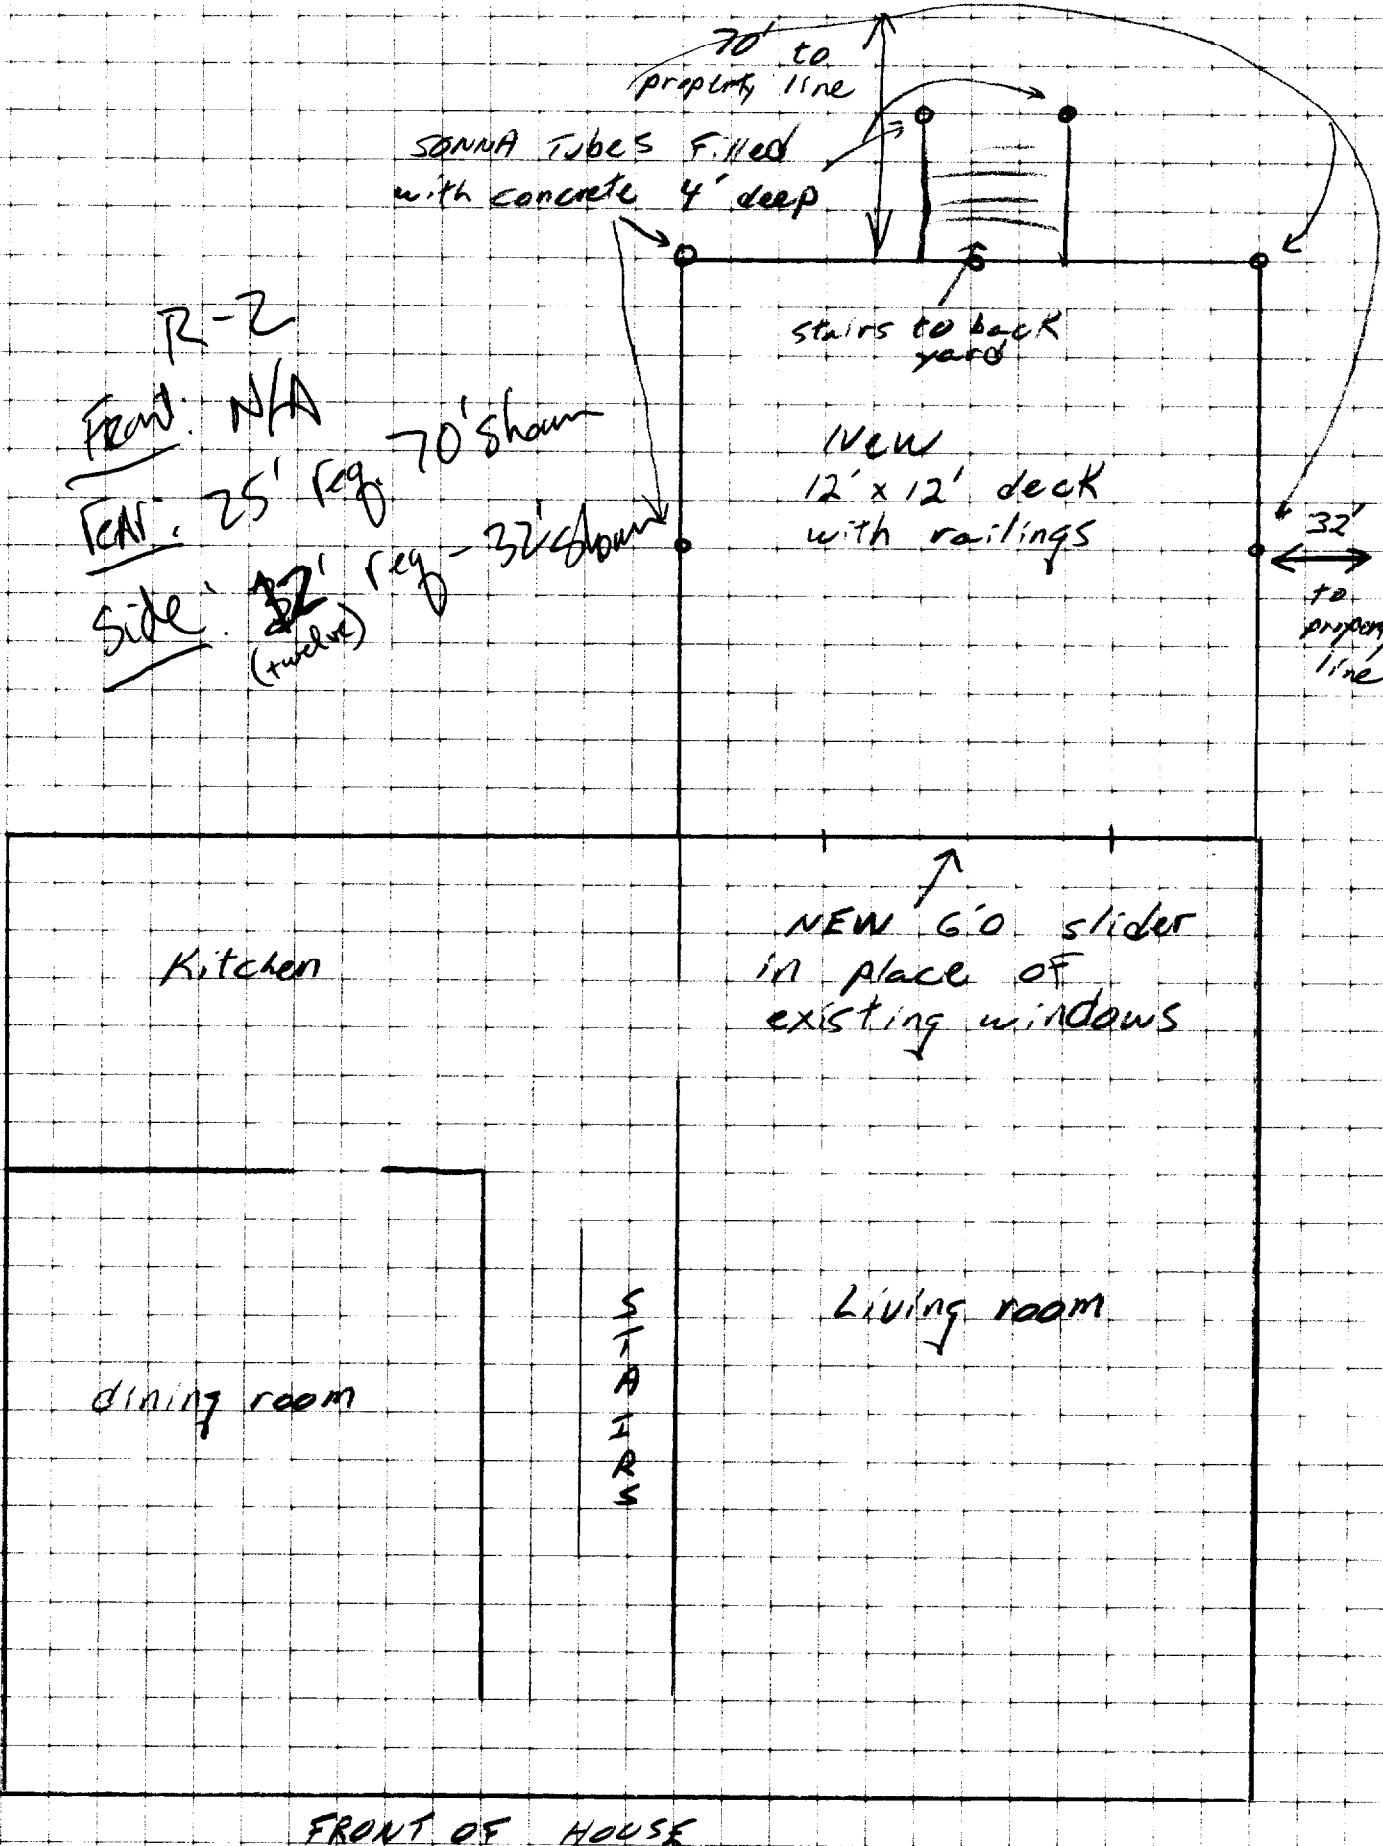 70' to
property line
SONNA Tubes Filled
with concrete 4' deep
stairs to back
yard
R-2
Front: N/A
rear: 25' req. 70' shown
Side: 12' req - 32' shown
(twelve)
New
12' x 12' deck
with railings
32'
to
property
line
Kitchen
NEW 6'0 slider
in place of
existing windows
STAIRS
Living room
dining room
FRONT OF HOUSE